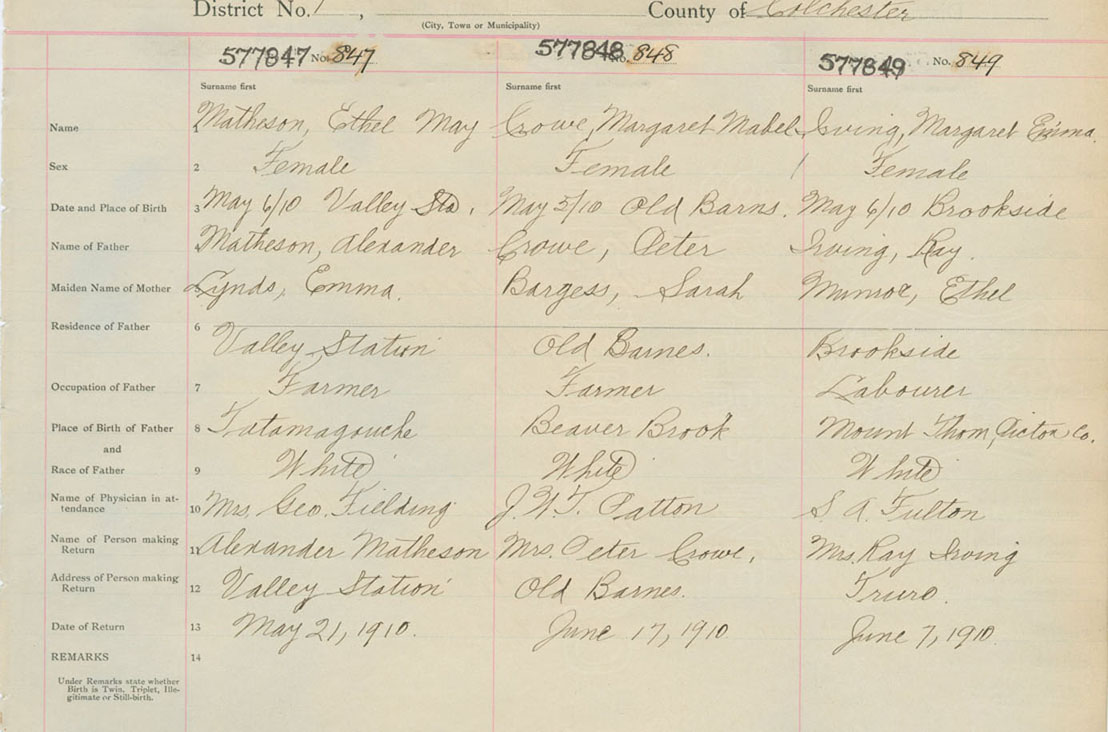 District No. 1, County of Colchester
(City, Town or Municipality)
577847 No. 847 577848 No. 848 577849 No. 849
Surname first Surname first Surname first
Name 1 Matheson, Ethel May Crowe, Margaret Mabel Irving, Margaret Emma.
Sex 2 Female Female Female
Date and Place of Birth 3 May 6/10 Valley Sta. May 5/10 Old Barns. May 6/10 Brookside
Name of Father 4 Matheson, Alexander Crowe, Peter Irving, Ray.
Maiden Name of Mother 5 Lynds, Emma. Bargess, Sarah Munroe, Ethel
Residence of Father 6
Valley Station Old Barnes. Brookside
Occupation of Father 7 Farmer Farmer Labourer
Place of Birth of Father 8 Tatamagouche Beaver Brook Mount Thom, Pictou Co.
and
Race of Father 9 White White White
Name of Physician in at-
tendance 10 Mrs. Geo. Fielding J. W. T. Patton S. A. Fulton
Name of Person making
Return 11 Alexander Matheson Mrs. Peter Crowe, Mrs. Ray Irving
Address of Person making
Return 12 Valley Station Old Barnes. Truro.
Date of Return 13 May 21, 1910. June 17, 1910 June 7, 1910
REMARKS 14
Under Remarks state whether
Birth is Twin, Triplet, Ille-
gitimate or Still-birth.